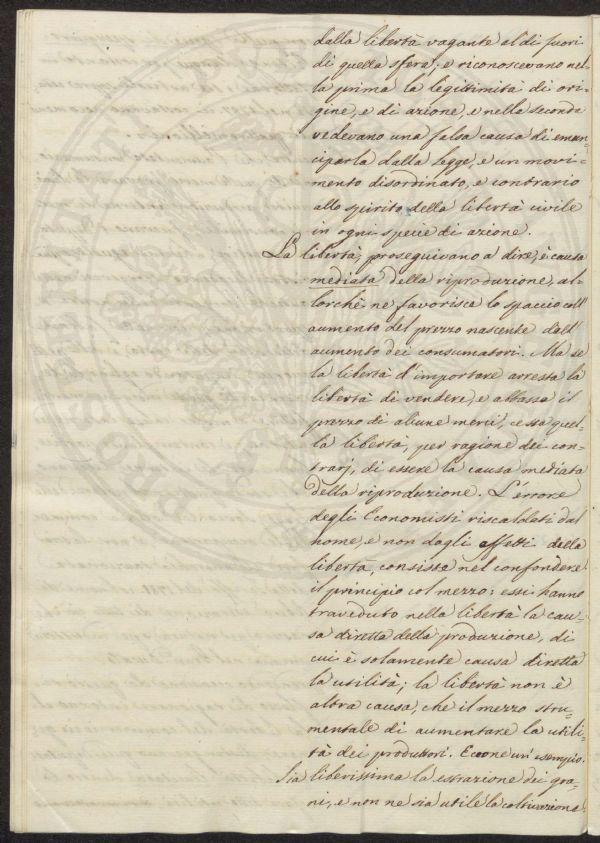 dalla libertà vagante al di fuori
di quella sfera; e riconoscevano nel-
la prima la legittimità di ori-
gine, e di azione, e nella seconda
vedevano una falsa causa di eman-
ciparla dalla legge, e un movi-
mento disordinato, e contrario
allo spirito della libertà civile
in ogni specie di azione.
La libertà, proseguivano a dire, è causa
mediata della riproduzione, al-
lorchè ne favorisce lo spaccio coll'
aumento del prezzo nascente dall'
aumento dei consumatori. Ma se
la libertà d'importare arresta la
libertà di vendere, e abbassa il
prezzo di alcune merci, cessa quel-
la libertà, per ragione dei con-
trarj, di essere la causa mediata
della riproduzione. L'errore
degli Economisti riscaldati dal
nome, e non dagli effetti della
libertà, consiste nel confondere
il principio col mezzo: essi hanno
traveduto nella libertà la cau-
sa diretta della produzione, di
cui è solamente causa diretta
la utilità; la libertà non è
altra causa, che il mezzo stru-
mentale di aumentare la utili-
tà dei produttori. Eccone un esempio.
Sia liberissima la estrazione dei gra-
ni, e non ne sia utile la coltivazione